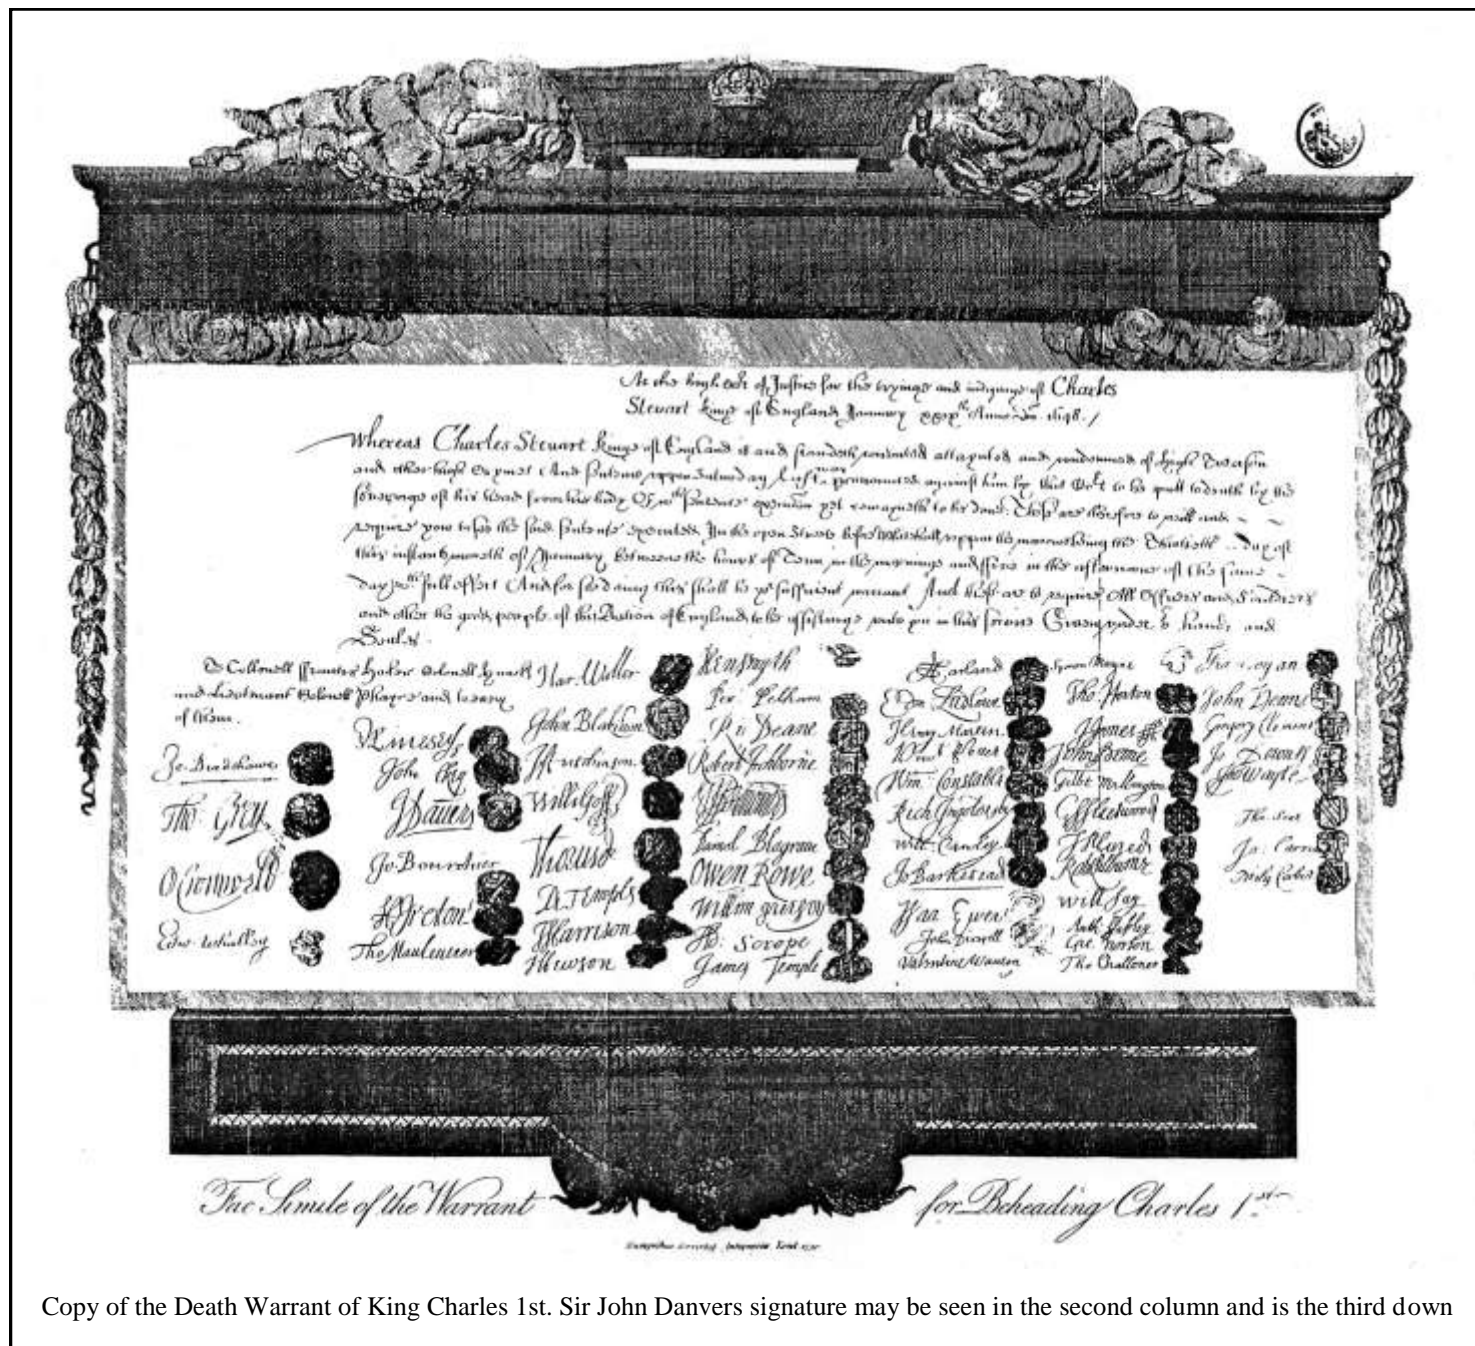 At the high Cort of Justice for the tryinge and iudginge of Charles
Steuart kinge of England January xxixth Anno Dm 1648./
Whereas Charles Steuart kinge of England is and standeth convicted attaynted and condemned of high Treason
and other high Crymes And sentence uppon Saturday last was pronounced against him by this Cort to be putt to death by the
severinge of his head from his body Of wch sentence execucon yet remayneth to be done. These are therefore to will and
require you to see the said sentence executed In the open Streete before Whitehall uppon the morrowe being the Thirtieth day of
this instant moneth of January betweene the hours of Tenn in the morninge and ffive in the afternoone of the same
day wth full effect And for soe doing this shall be yor sufficient warrant And these are to require All Officers and Souldiers
and other the good people of this Nation of England to be assistinge unto you in this service Given under or hands and
Seales
To Collonell ffrancis Hacker Colonell Huncks
and Lieutenant Colonell Phayre and to every
of them.
Jo Bradshawe
Tho Grey
O Cromwell
Edw Whalley
M Livesey
John Okey
J Danvers
Jo Bourchier
H Ireton
Tho Mauleverer
Har. Waller
John Blakiston
J Hutchinson
Willi Goff
Tho Pride
P Temple
T Harrison
J Hewson
Hen Smyth
Per. Pelham
Ri Deane
Robert Tichborne
H Edwardes
Daniel Blagrave
Owen Rowe
William Purefoy
Ad: Scrope
James Temple
A Garland
Edm Ludlowe
Henry Marten
Vint Potter
Wm Constable
Rich Ingoldesby
Will Cawley
Jo Barkstead
Isaa Ewer
John Dixwell
Valentine Wauton
Symon Mayne
Tho Horton
J Jones
John Penne
Gilbt Millington
G Fleetwood
J Alured
Robt Lilburne
Will Say
Anth Stapley
Gre Norton
Tho Challoner
Tho Wogan
John Venn
Gregory Clement
Jo Downes
Tho Wayte
Tho Scot
Jo Carew
Miles Corbet
Fac Simile of the Warrant for Beheading Charles 1st
Copy of the Death Warrant of King Charles 1st. Sir John Danvers signature may be seen in the second column and is the third down